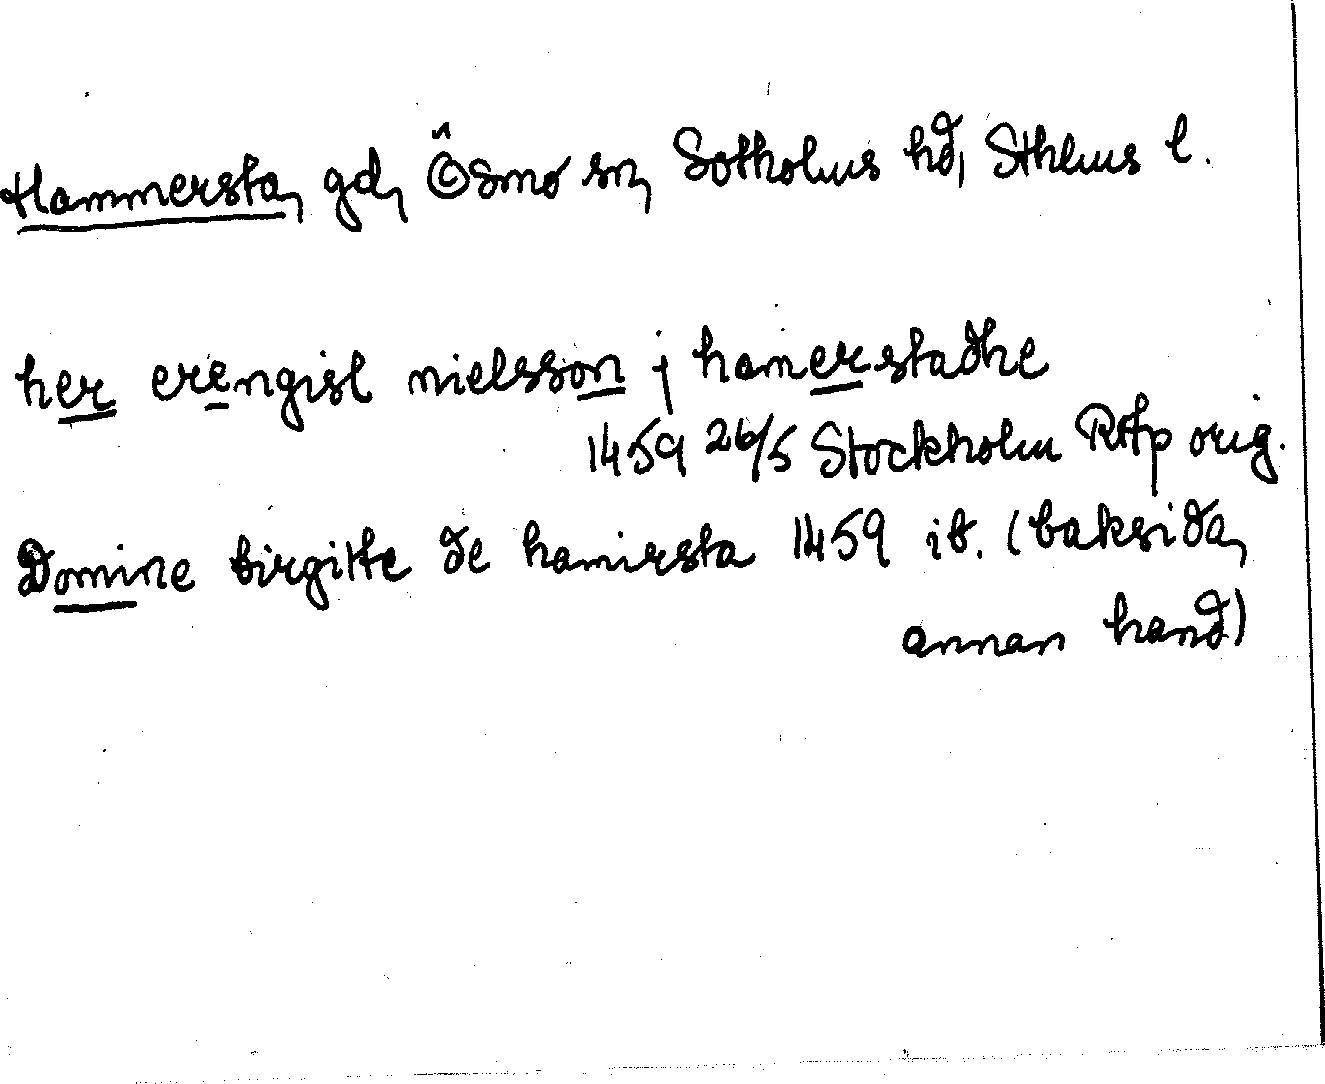 Hammersta, gd, Ösmo sn, Sotholms hd, Sthlms l.
her erengisl nielsson j hamerstadhe
1459 26/5 Stockholm RAp orig.
Domine birgitte de hamirsta 1459 ib. (baksida,
annan hand)